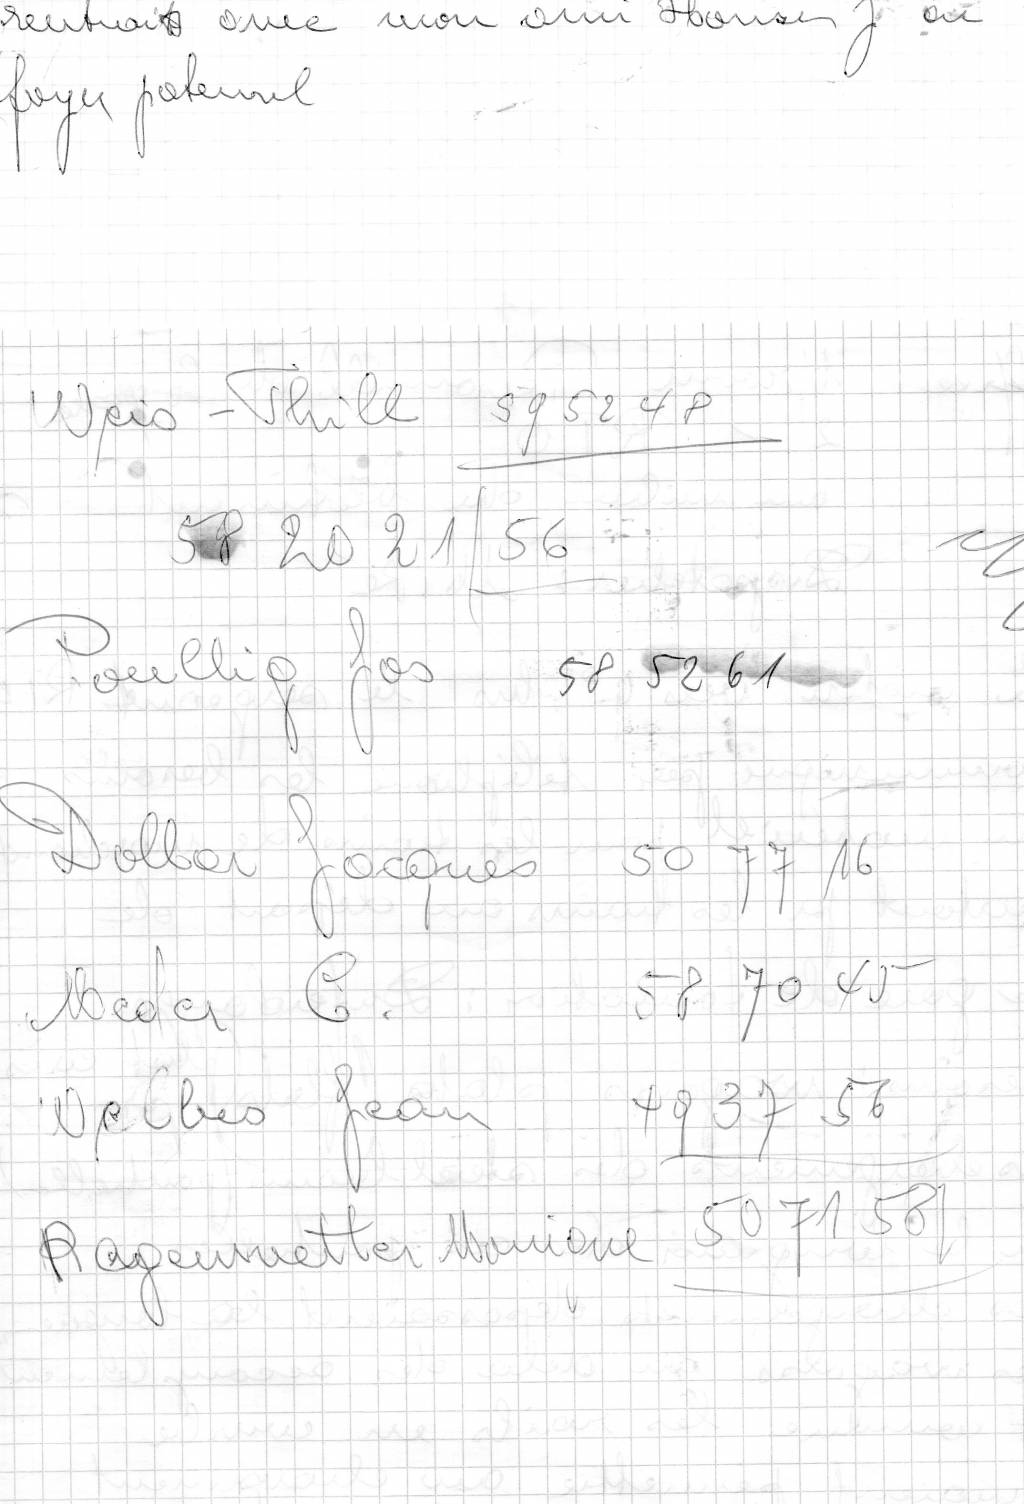 rentrais avec mon ami Hansen J au
foyer paternel
Weis - Thill 595248
58 20 21 56
Poullig Jos 58 52 61
Dollar Jacques 50 77 16
Meder C. 58 70 45
Welbes Jean 49 37 56
Ragenwetter Monique 50 71 58